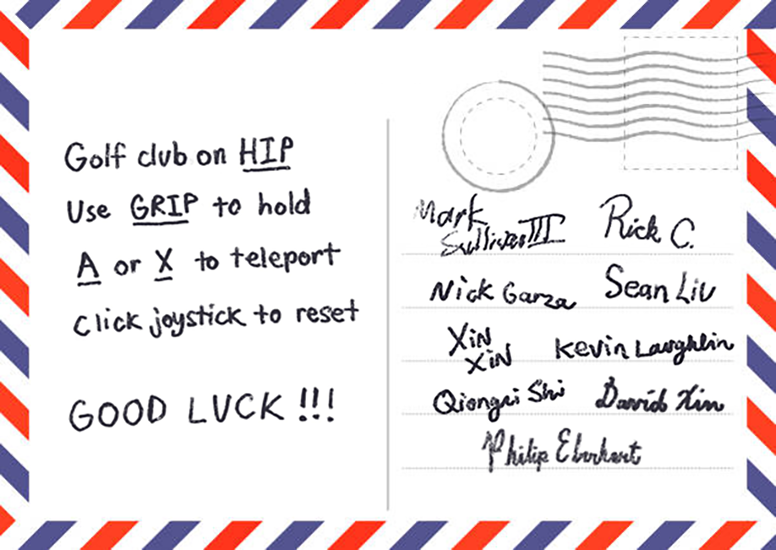 Golf club on HIP
Use GRIP to hold
A or X to teleport
Click joystick to reset
GOOD LUCK !!!
Mark Sullivan III
Rick C.
Nick Garza
Sean Liu
XiN XiN
Kevin Laughlin
Shi
David Xin
Philip Eberhart